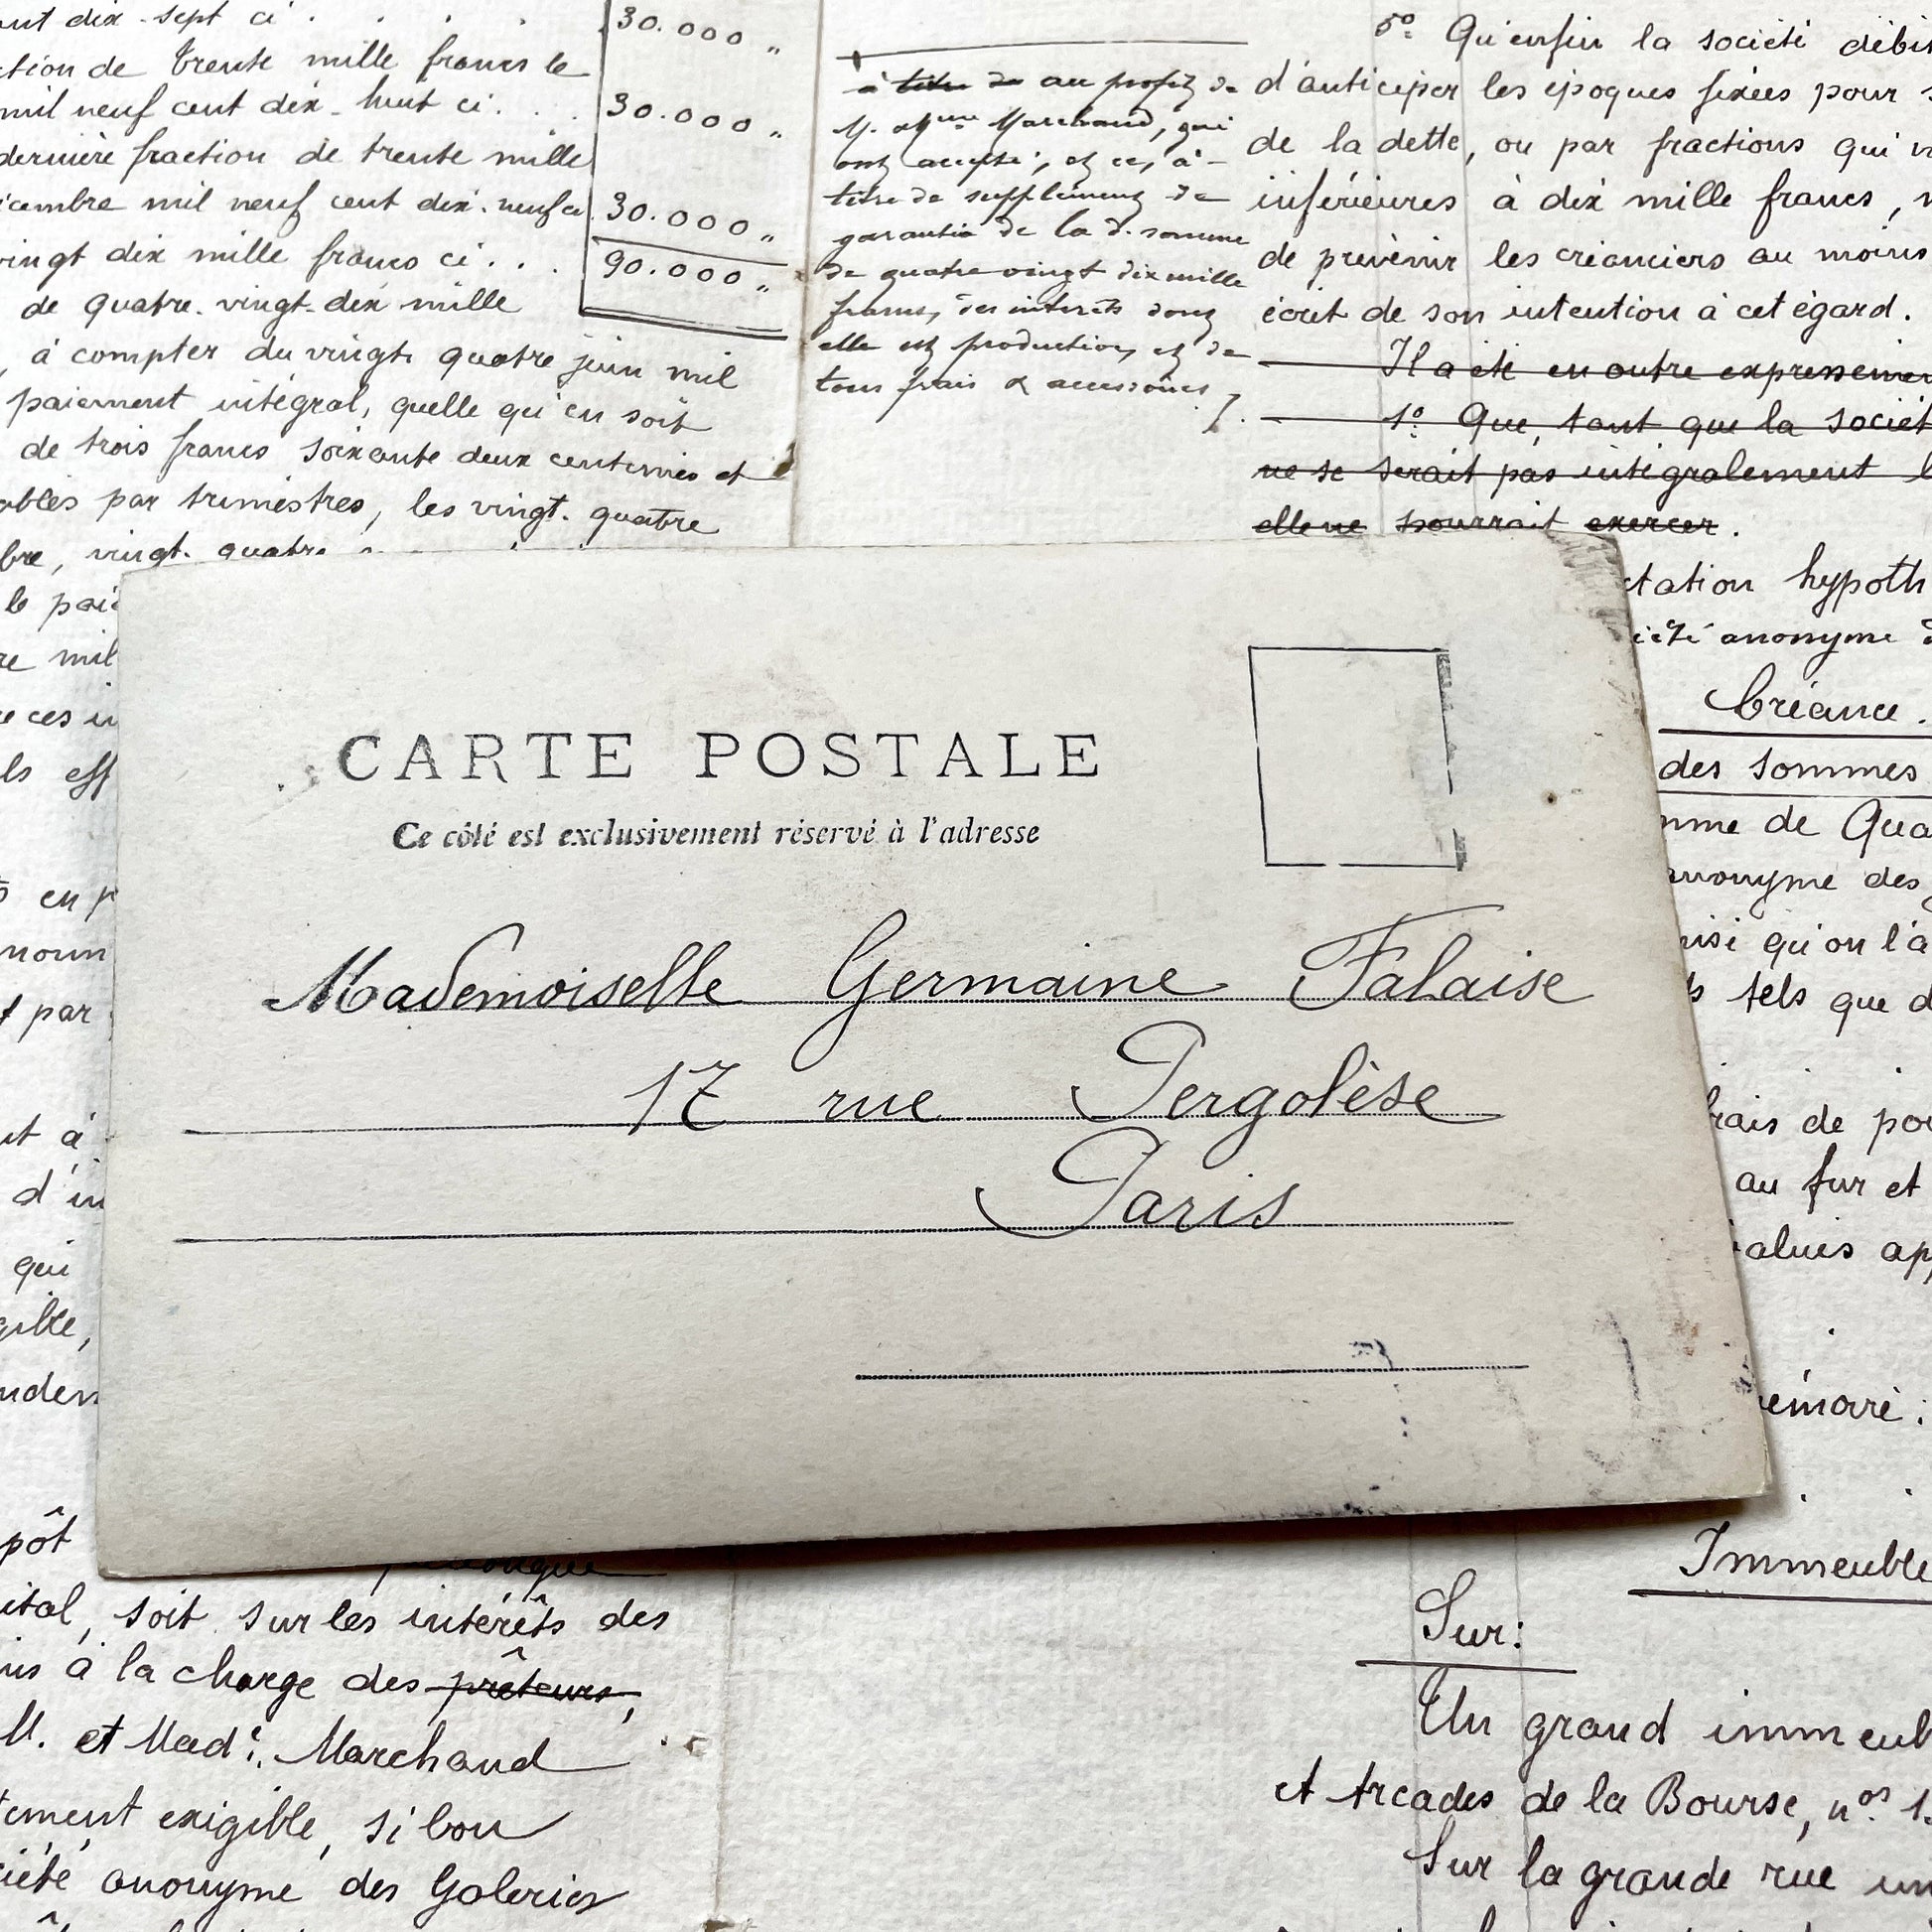 ant dix-sept ci . . . . 30.000 "
ction de trente mille francs le
mil neuf cent dix-huit ci . . . 30.000 "
dernière fraction de trente mille
écembre mil neuf cent dix-neuf ci 30.000 "
vingt dix mille francs ci . . . 90.000 "
de quatre-vingt-dix mille
, à compter du vingt-quatre juin mil
paiement intégral, quelle qu'en soit
de trois francs soixante deux centimes et
ables par trimestres, les vingt-quatre
bre, vingt-quatre
le pai
re mil
ce ces in
ls eff
en p
nom
par
nt à
d'in
qui
gible,
nden
à titre de au profit de
M. et Mme Marchand, qui
ont accepté, et ce, à
titre de supplément de
garantie de la d. somme
de quatre vingt dix mille
francs, des intérêts dont
elle est productive, et de
tous frais & accessoires ./.
5º Qu'enfin la société débit
d'anticiper les époques fixées pour
de la dette, ou par fractions qui
inférieures à dix mille francs,
de prévenir les créanciers au moins
écrit de son intention à cet égard.
Il a été en outre expressémen
1º Que, tant que la sociét
ne se serait pas intégralement l
elle ne pourrait exercer.
tation hypoth
iété anonyme d
Créance.
des sommes
mme de Qua
anonyme des
nisi qu'on l'a
tels que d
frais de po
au fur et
alués ap
émoire :
CARTE POSTALE
Ce côté est exclusivement réservé à l'adresse
Mademoiselle Germaine Falaise
17 rue Pergolèse
Paris
pôt
ital, soit sur les intérêts des
is à la charge des prêteurs,
M. et Made. Marchand
tement exigible, si bon
ciété anonyme des Galeries
Immeuble
Sur:
Un grand immeub
et Arcades de la Bourse, nos 1
Sur la grande rue un